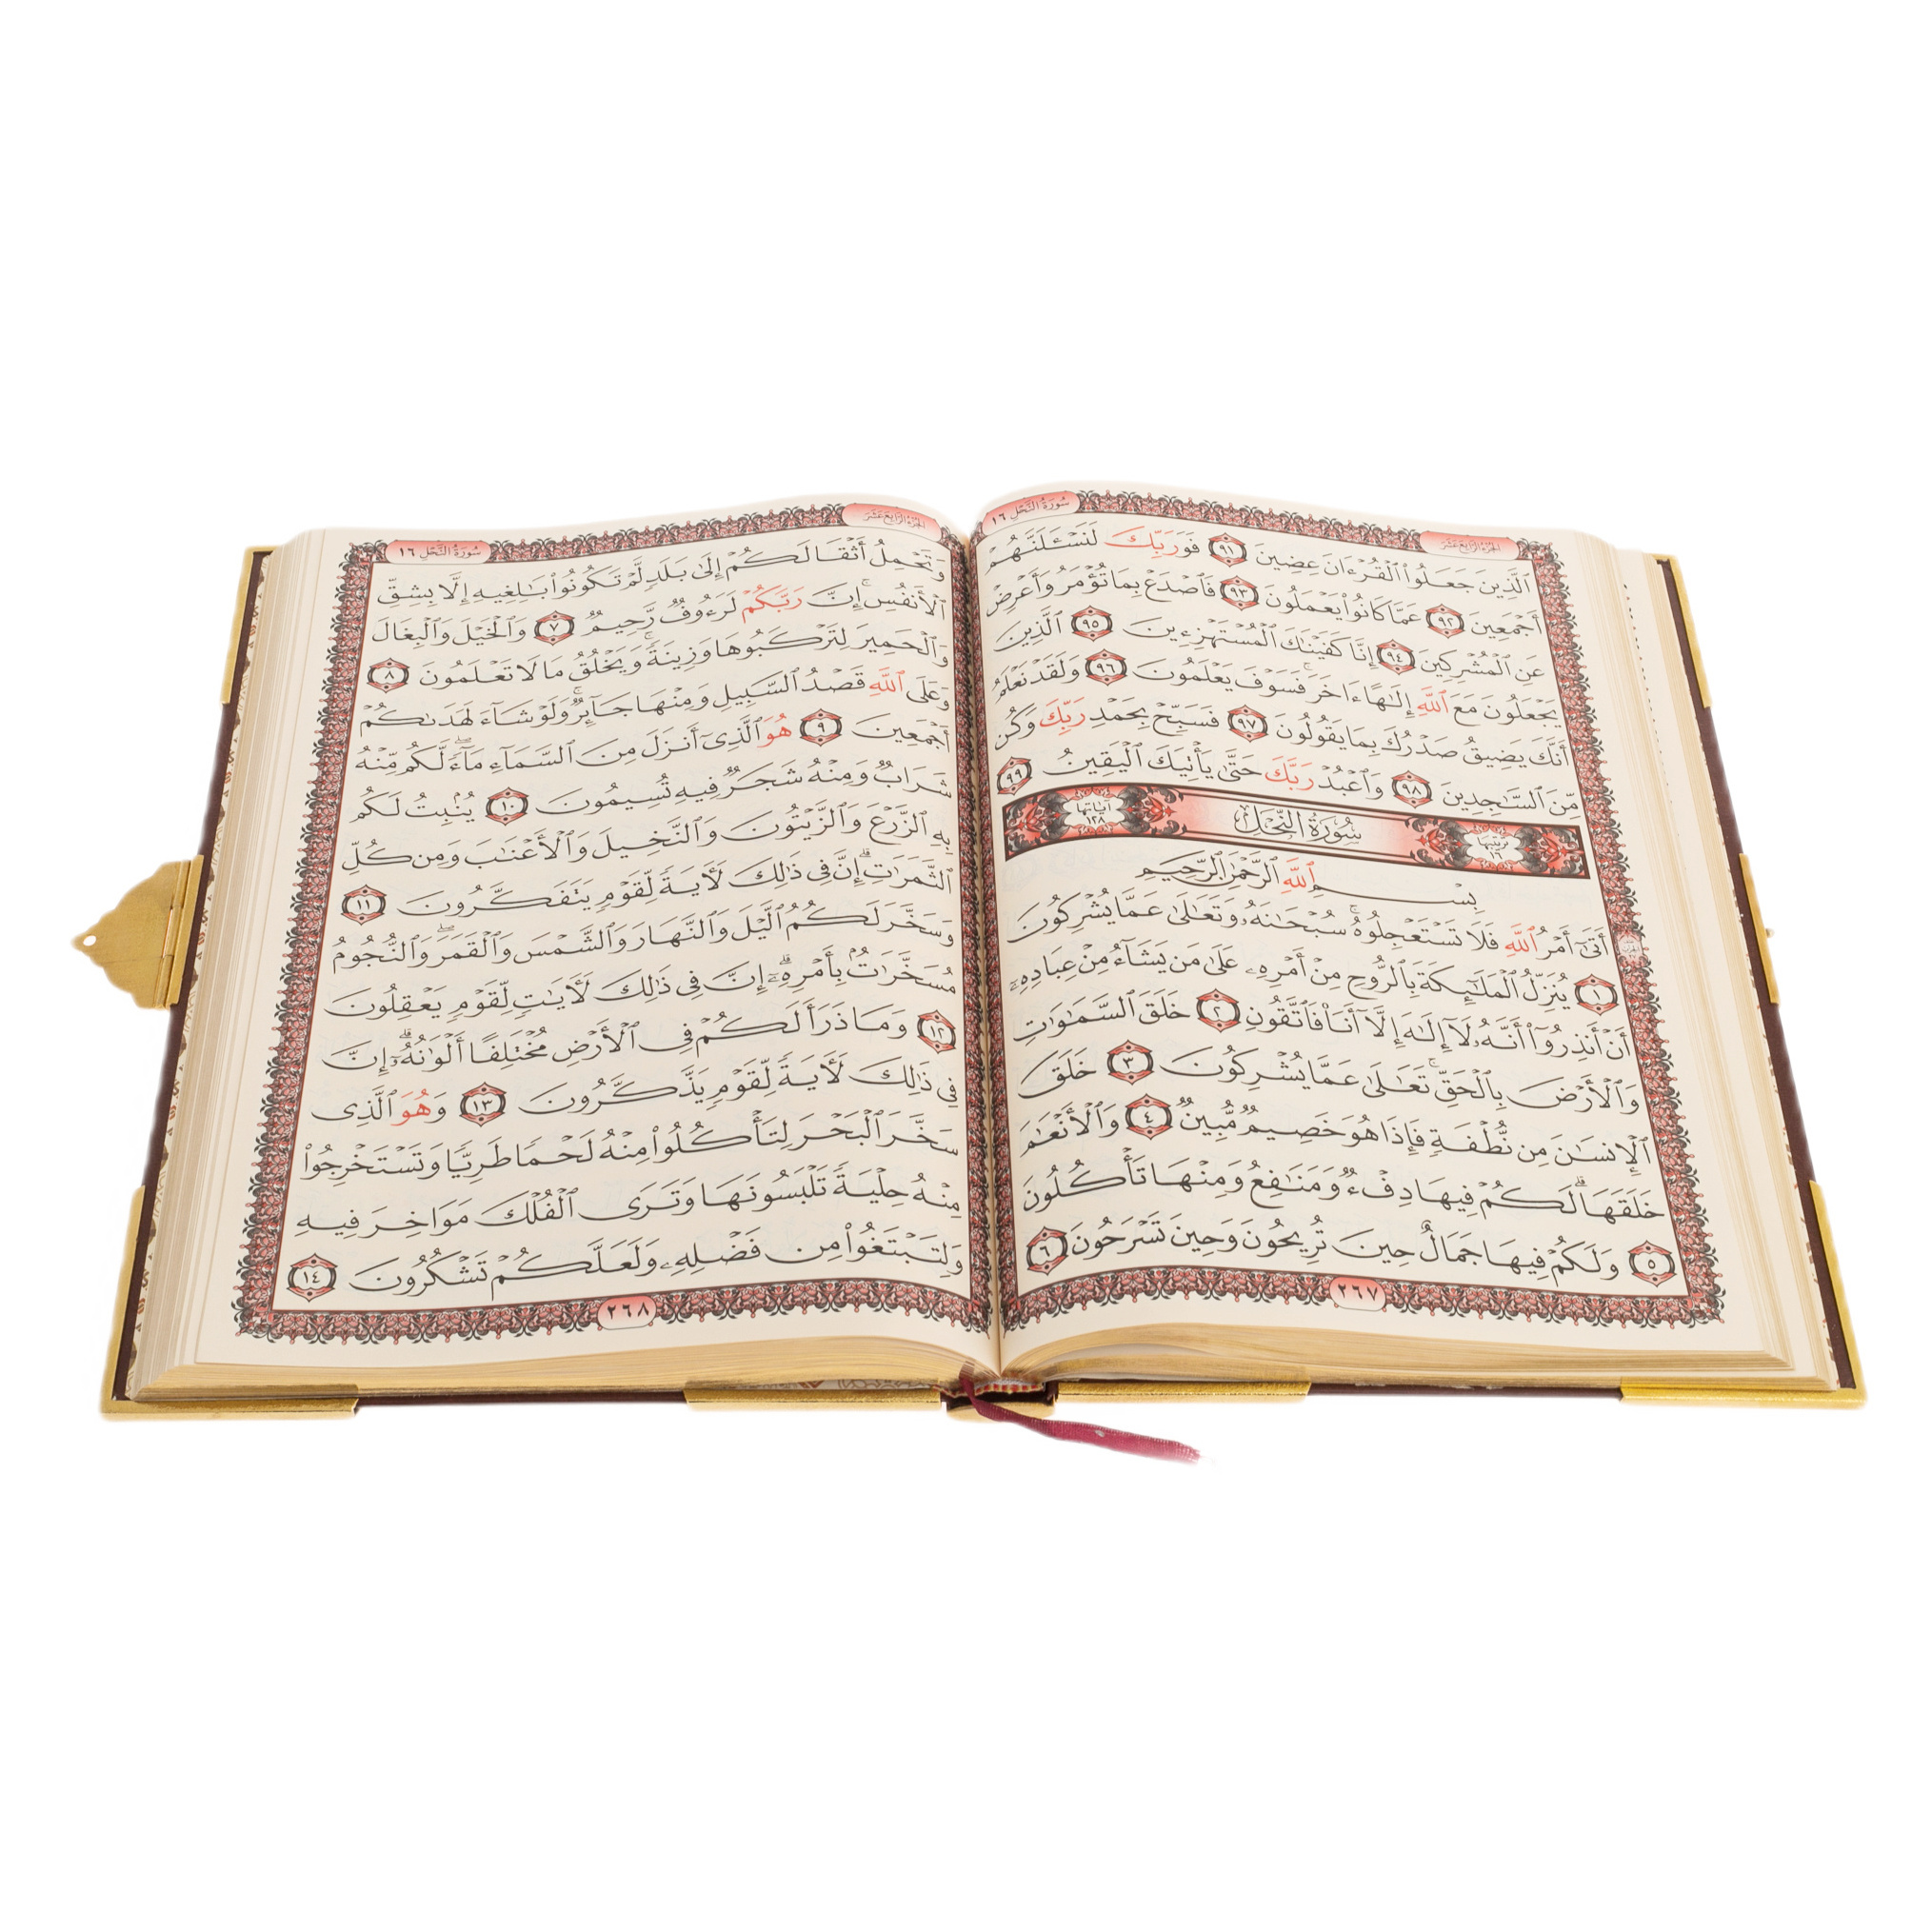 سُورَةُ النَّحْلِ ١٦
الجُزْءُ الرَّابِعَ عَشَرَ
ٱلَّذِينَ جَعَلُوا۟ ٱلْقُرْءَانَ عِضِينَ ٩١ فَوَرَبِّكَ لَنَسْـَٔلَنَّهُمْ
أَجْمَعِينَ ٩٢ عَمَّا كَانُوا۟ يَعْمَلُونَ ٩٣ فَٱصْدَعْ بِمَا تُؤْمَرُ وَأَعْرِضْ
عَنِ ٱلْمُشْرِكِينَ ٩٤ إِنَّا كَفَيْنَٰكَ ٱلْمُسْتَهْزِءِينَ ٩٥ ٱلَّذِينَ
يَجْعَلُونَ مَعَ ٱللَّهِ إِلَٰهًا ءَاخَرَ ۚ فَسَوْفَ يَعْلَمُونَ ٩٦ وَلَقَدْ نَعْلَمُ
أَنَّكَ يَضِيقُ صَدْرُكَ بِمَا يَقُولُونَ ٩٧ فَسَبِّحْ بِحَمْدِ رَبِّكَ وَكُن
مِّنَ ٱلسَّٰجِدِينَ ٩٨ وَٱعْبُدْ رَبَّكَ حَتَّىٰ يَأْتِيَكَ ٱلْيَقِينُ ٩٩
ترتيبها ١٦ سُورَةُ النَّحْلِ آياتها ١٢٨
بِسْمِ ٱللَّهِ ٱلرَّحْمَٰنِ ٱلرَّحِيمِ
أَتَىٰٓ أَمْرُ ٱللَّهِ فَلَا تَسْتَعْجِلُوهُ ۚ سُبْحَٰنَهُۥ وَتَعَٰلَىٰ عَمَّا يُشْرِكُونَ
١ يُنَزِّلُ ٱلْمَلَٰٓئِكَةَ بِٱلرُّوحِ مِنْ أَمْرِهِۦ عَلَىٰ مَن يَشَآءُ مِنْ عِبَادِهِۦٓ
أَنْ أَنذِرُوٓا۟ أَنَّهُۥ لَآ إِلَٰهَ إِلَّآ أَنَا۠ فَٱتَّقُونِ ٢ خَلَقَ ٱلسَّمَٰوَٰتِ
وَٱلْأَرْضَ بِٱلْحَقِّ ۚ تَعَٰلَىٰ عَمَّا يُشْرِكُونَ ٣ خَلَقَ
ٱلْإِنسَٰنَ مِن نُّطْفَةٍ فَإِذَا هُوَ خَصِيمٌ مُّبِينٌ ٤ وَٱلْأَنْعَٰمَ
خَلَقَهَا ۗ لَكُمْ فِيهَا دِفْءٌ وَمَنَٰفِعُ وَمِنْهَا تَأْكُلُونَ
٥ وَلَكُمْ فِيهَا جَمَالٌ حِينَ تُرِيحُونَ وَحِينَ تَسْرَحُونَ ٦
٢٦٧
الجُزْءُ الرَّابِعَ عَشَرَ
سُورَةُ النَّحْلِ ١٦
وَتَحْمِلُ أَثْقَالَكُمْ إِلَىٰ بَلَدٍ لَّمْ تَكُونُوا۟ بَٰلِغِيهِ إِلَّا بِشِقِّ
ٱلْأَنفُسِ ۚ إِنَّ رَبَّكُمْ لَرَءُوفٌ رَّحِيمٌ ٧ وَٱلْخَيْلَ وَٱلْبِغَالَ
وَٱلْحَمِيرَ لِتَرْكَبُوهَا وَزِينَةً ۚ وَيَخْلُقُ مَا لَا تَعْلَمُونَ ٨
وَعَلَى ٱللَّهِ قَصْدُ ٱلسَّبِيلِ وَمِنْهَا جَآئِرٌ ۚ وَلَوْ شَآءَ لَهَدَىٰكُمْ
أَجْمَعِينَ ٩ هُوَ ٱلَّذِىٓ أَنزَلَ مِنَ ٱلسَّمَآءِ مَآءً ۖ لَّكُم مِّنْهُ
شَرَابٌ وَمِنْهُ شَجَرٌ فِيهِ تُسِيمُونَ ١٠ يُنۢبِتُ لَكُم
بِهِ ٱلزَّرْعَ وَٱلزَّيْتُونَ وَٱلنَّخِيلَ وَٱلْأَعْنَٰبَ وَمِن كُلِّ
ٱلثَّمَرَٰتِ ۗ إِنَّ فِى ذَٰلِكَ لَءَايَةً لِّقَوْمٍ يَتَفَكَّرُونَ ١١
وَسَخَّرَ لَكُمُ ٱلَّيْلَ وَٱلنَّهَارَ وَٱلشَّمْسَ وَٱلْقَمَرَ ۖ وَٱلنُّجُومُ
مُسَخَّرَٰتٌۢ بِأَمْرِهِۦٓ ۗ إِنَّ فِى ذَٰلِكَ لَءَايَٰتٍ لِّقَوْمٍ يَعْقِلُونَ
١٢ وَمَا ذَرَأَ لَكُمْ فِى ٱلْأَرْضِ مُخْتَلِفًا أَلْوَٰنُهُۥٓ ۗ إِنَّ
فِى ذَٰلِكَ لَءَايَةً لِّقَوْمٍ يَذَّكَّرُونَ ١٣ وَهُوَ ٱلَّذِى
سَخَّرَ ٱلْبَحْرَ لِتَأْكُلُوا۟ مِنْهُ لَحْمًا طَرِيًّا وَتَسْتَخْرِجُوا۟
مِنْهُ حِلْيَةً تَلْبَسُونَهَا وَتَرَى ٱلْفُلْكَ مَوَاخِرَ فِيهِ
وَلِتَبْتَغُوا۟ مِن فَضْلِهِۦ وَلَعَلَّكُمْ تَشْكُرُونَ ١٤
٢٦٨